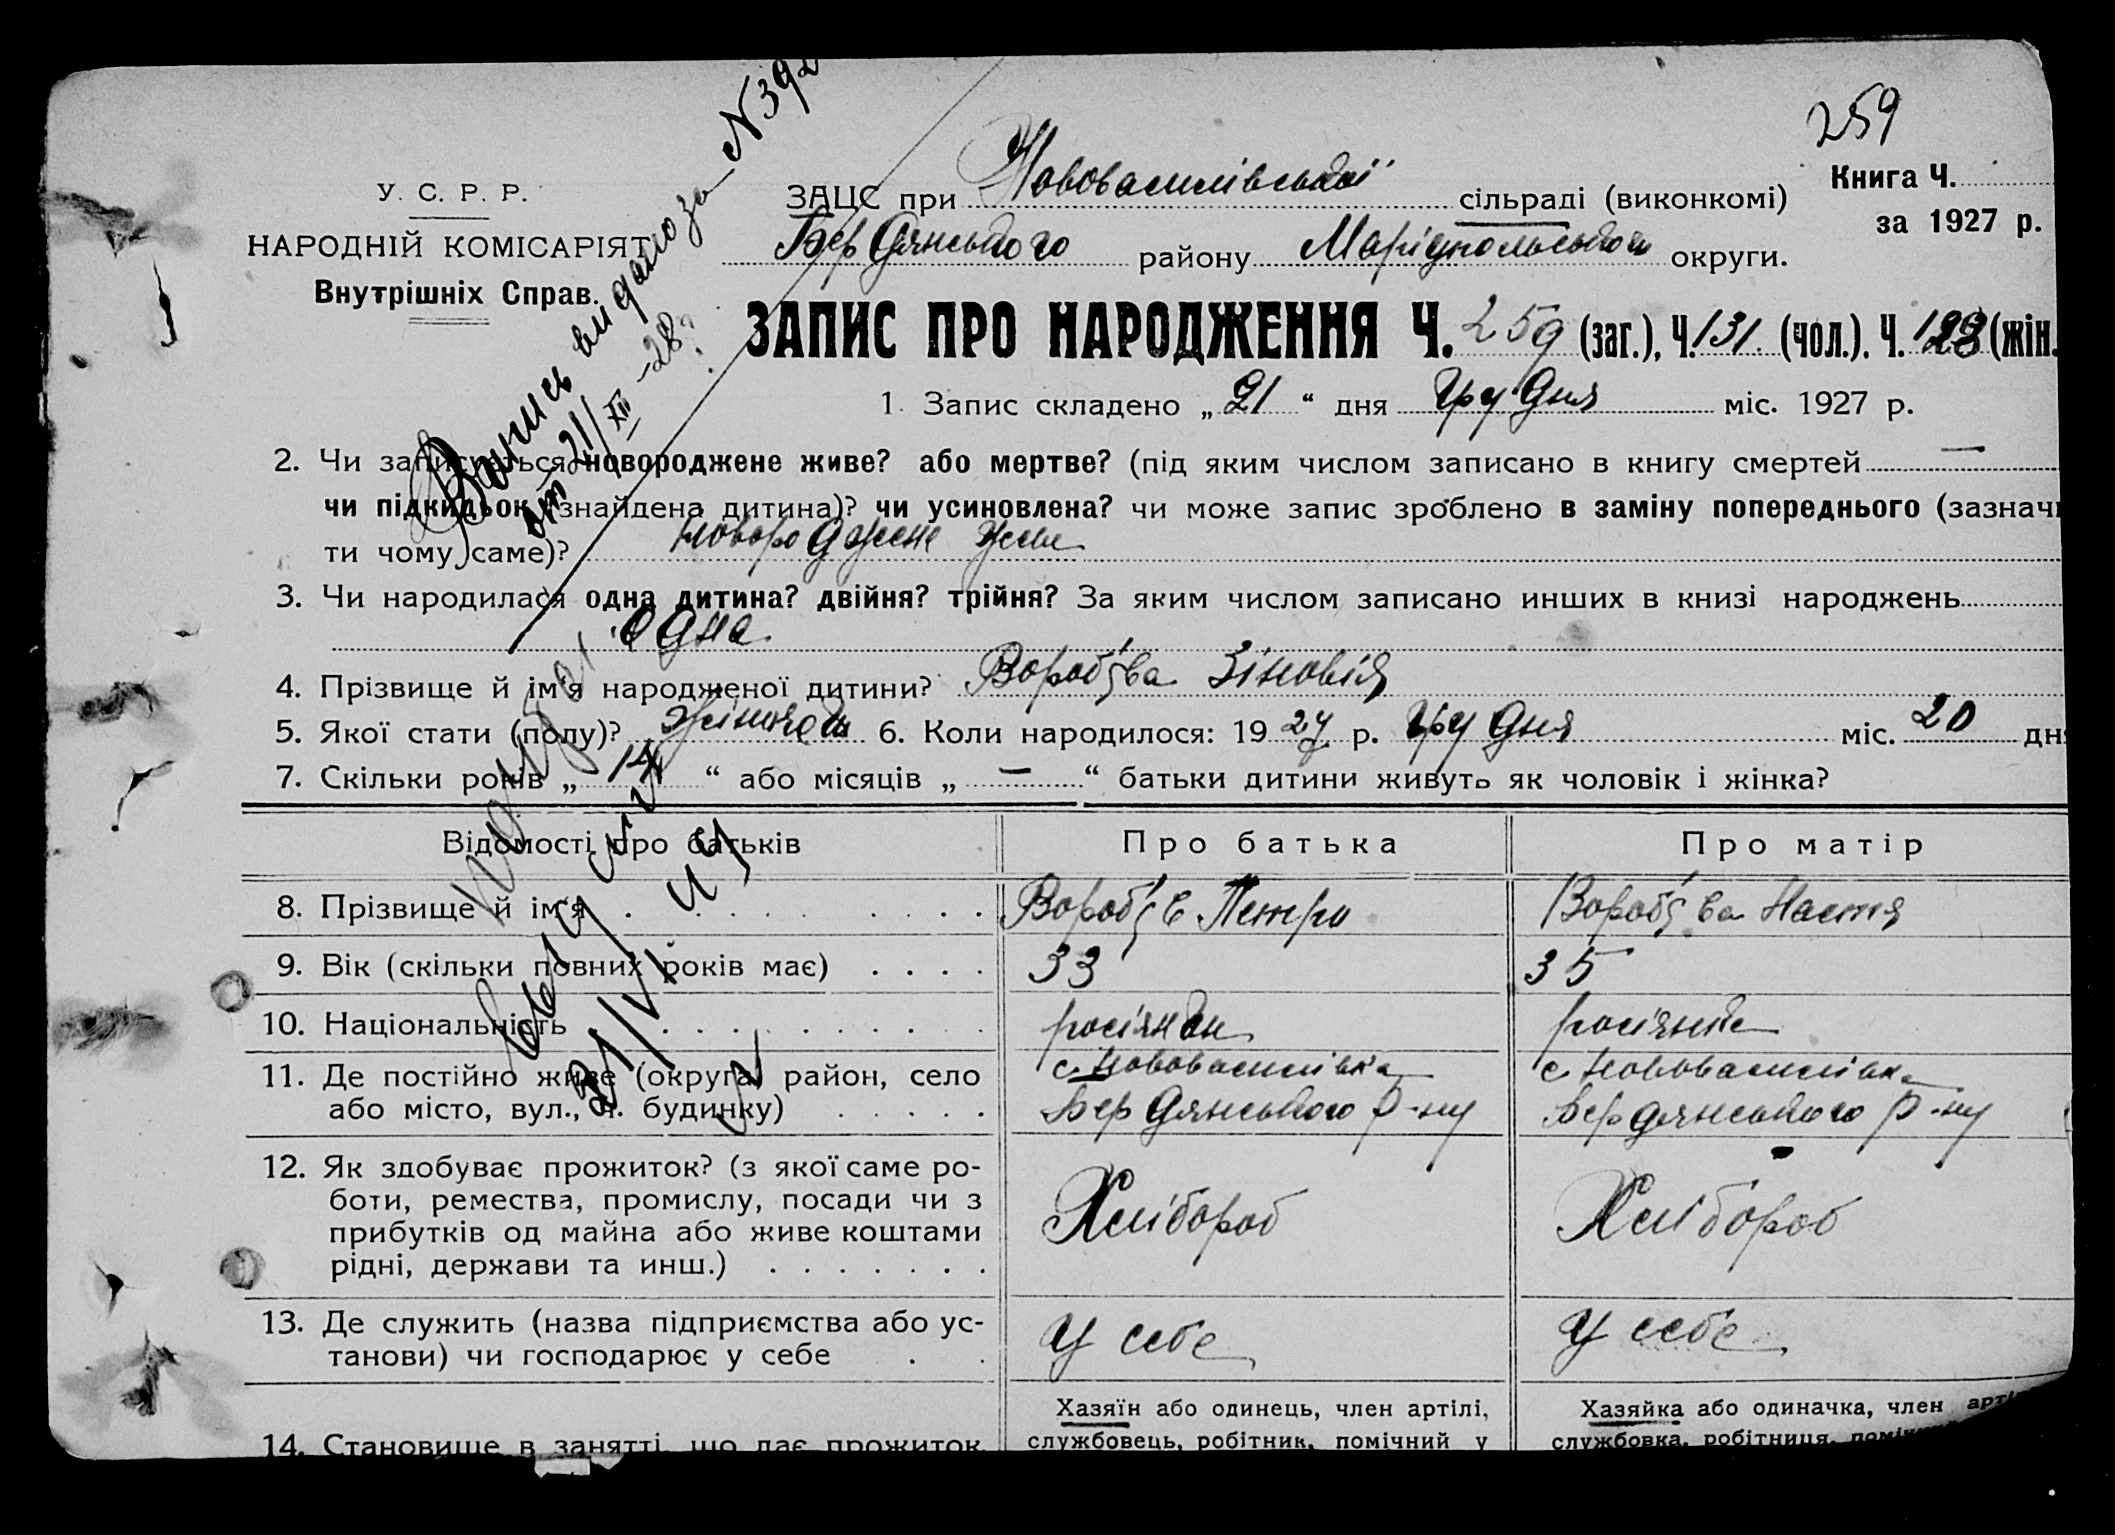 259
У. С. Р. Р.
НАРОДНІЙ КОМІСАРІЯТ
Внутрішніх Справ.
ЗАЦС при Нововасилівської сільраді (виконкомі)
Бердянського району Маріупольської округи.
Книга Ч.
за 1927 р.
ЗАПИС ПРО НАРОДЖЕННЯ Ч. 259 (заг.), Ч. 131 (чол.). Ч. 128 (жін.
1. Запис складено „ 21 “ дня Грудня міс. 1927 р.
2. Чи записується новороджене живе? або мертве? (під яким числом записано в книгу смертей —
чи підкидьок (знайдена дитина)? чи усиновлена? чи може запис зроблено в заміну попереднього (зазначи
ти чому саме)? новороджене живе
3. Чи народилася одна дитина? двійня? трійня? За яким числом записано инших в книзі народжень
одна
4. Прізвище й ім'я народженої дитини? Вороб'ьва Зіновія
5. Якої стати (полу)? жіночої 6. Коли народилося: 1927 р. Грудня міс. 20 дня
7. Скільки років „ 14 “ або місяців „ — “ батьки дитини живуть як чоловік і жінка?
Відомості про батьків Про батька Про матір
8. Прізвище й ім'я Вороб'ьв Петро Вороб'ьва Настя
9. Вік (скільки повних років має) 33 35
10. Національність росіянин росіянка
11. Де постійно живе (округа, район, село с. Нововасилівка с. Нововасилівка
або місто, вул., ч. будинку) Бердянського р-ну Бердянського р-ну
12. Як здобуває прожиток? (з якої саме ро-
боти, ремества, промислу, посади чи з Хлібороб Хлібороб
прибутків од майна або живе коштами
рідні, держави та инш.)
13. Де служить (назва підприємства або ус- у себе у себе
танови) чи господарює у себе
Хазяїн або одинець, член артілі, Хазяйка або одиначка, член арті
14. Становище в занятті, що дає прожиток службовець, робітник, помічний у службовка, робітниця,
Випись видано за N 392
от 21/XII-28